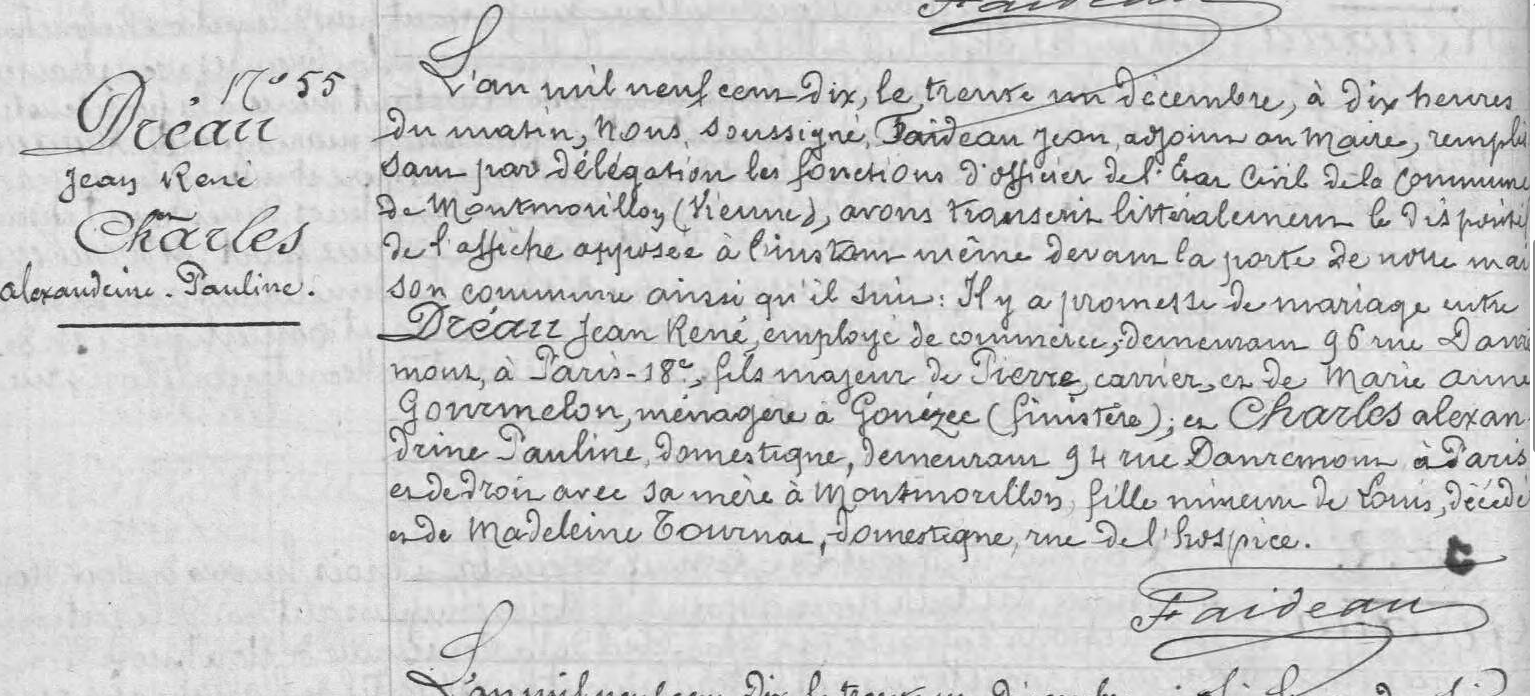 Faideau
N° 55
Dréau
Jean René
et
Charles
alexandrine. Pauline.
L'an mil neuf cent dix, le trente un décembre, à dix heures
du matin, Nous, soussigné, Faideau Jean, adjoint au Maire, remplis
sant par délégation les fonctions d'officier de l'Etat Civil de la Commune
de Montmorillon (Vienne), avons transcrit littéralement le dispositif
de l'affiche apposée à l'instant même devant la porte de notre mai
son commune ainsi qu'il suit: Il y a promesse de mariage entre
Dréau Jean René, employé de commerce, demeurant 96 rue Danré
mont, à Paris-18e, fils majeur de Pierre, carrier, et de Marie Anne
Gourmelon, ménagère à Gouézec (finistère); et Charles alexan
drine Pauline, domestique, demeurant 94 rue Danremont à Paris
et de droit avec sa mère à Montmorillon, fille mineure de Louis, décédé
et de Madeleine Tournat, domestique, rue de l'hospice.
Faideau
L'an mil neuf cent dix le trente un décembre